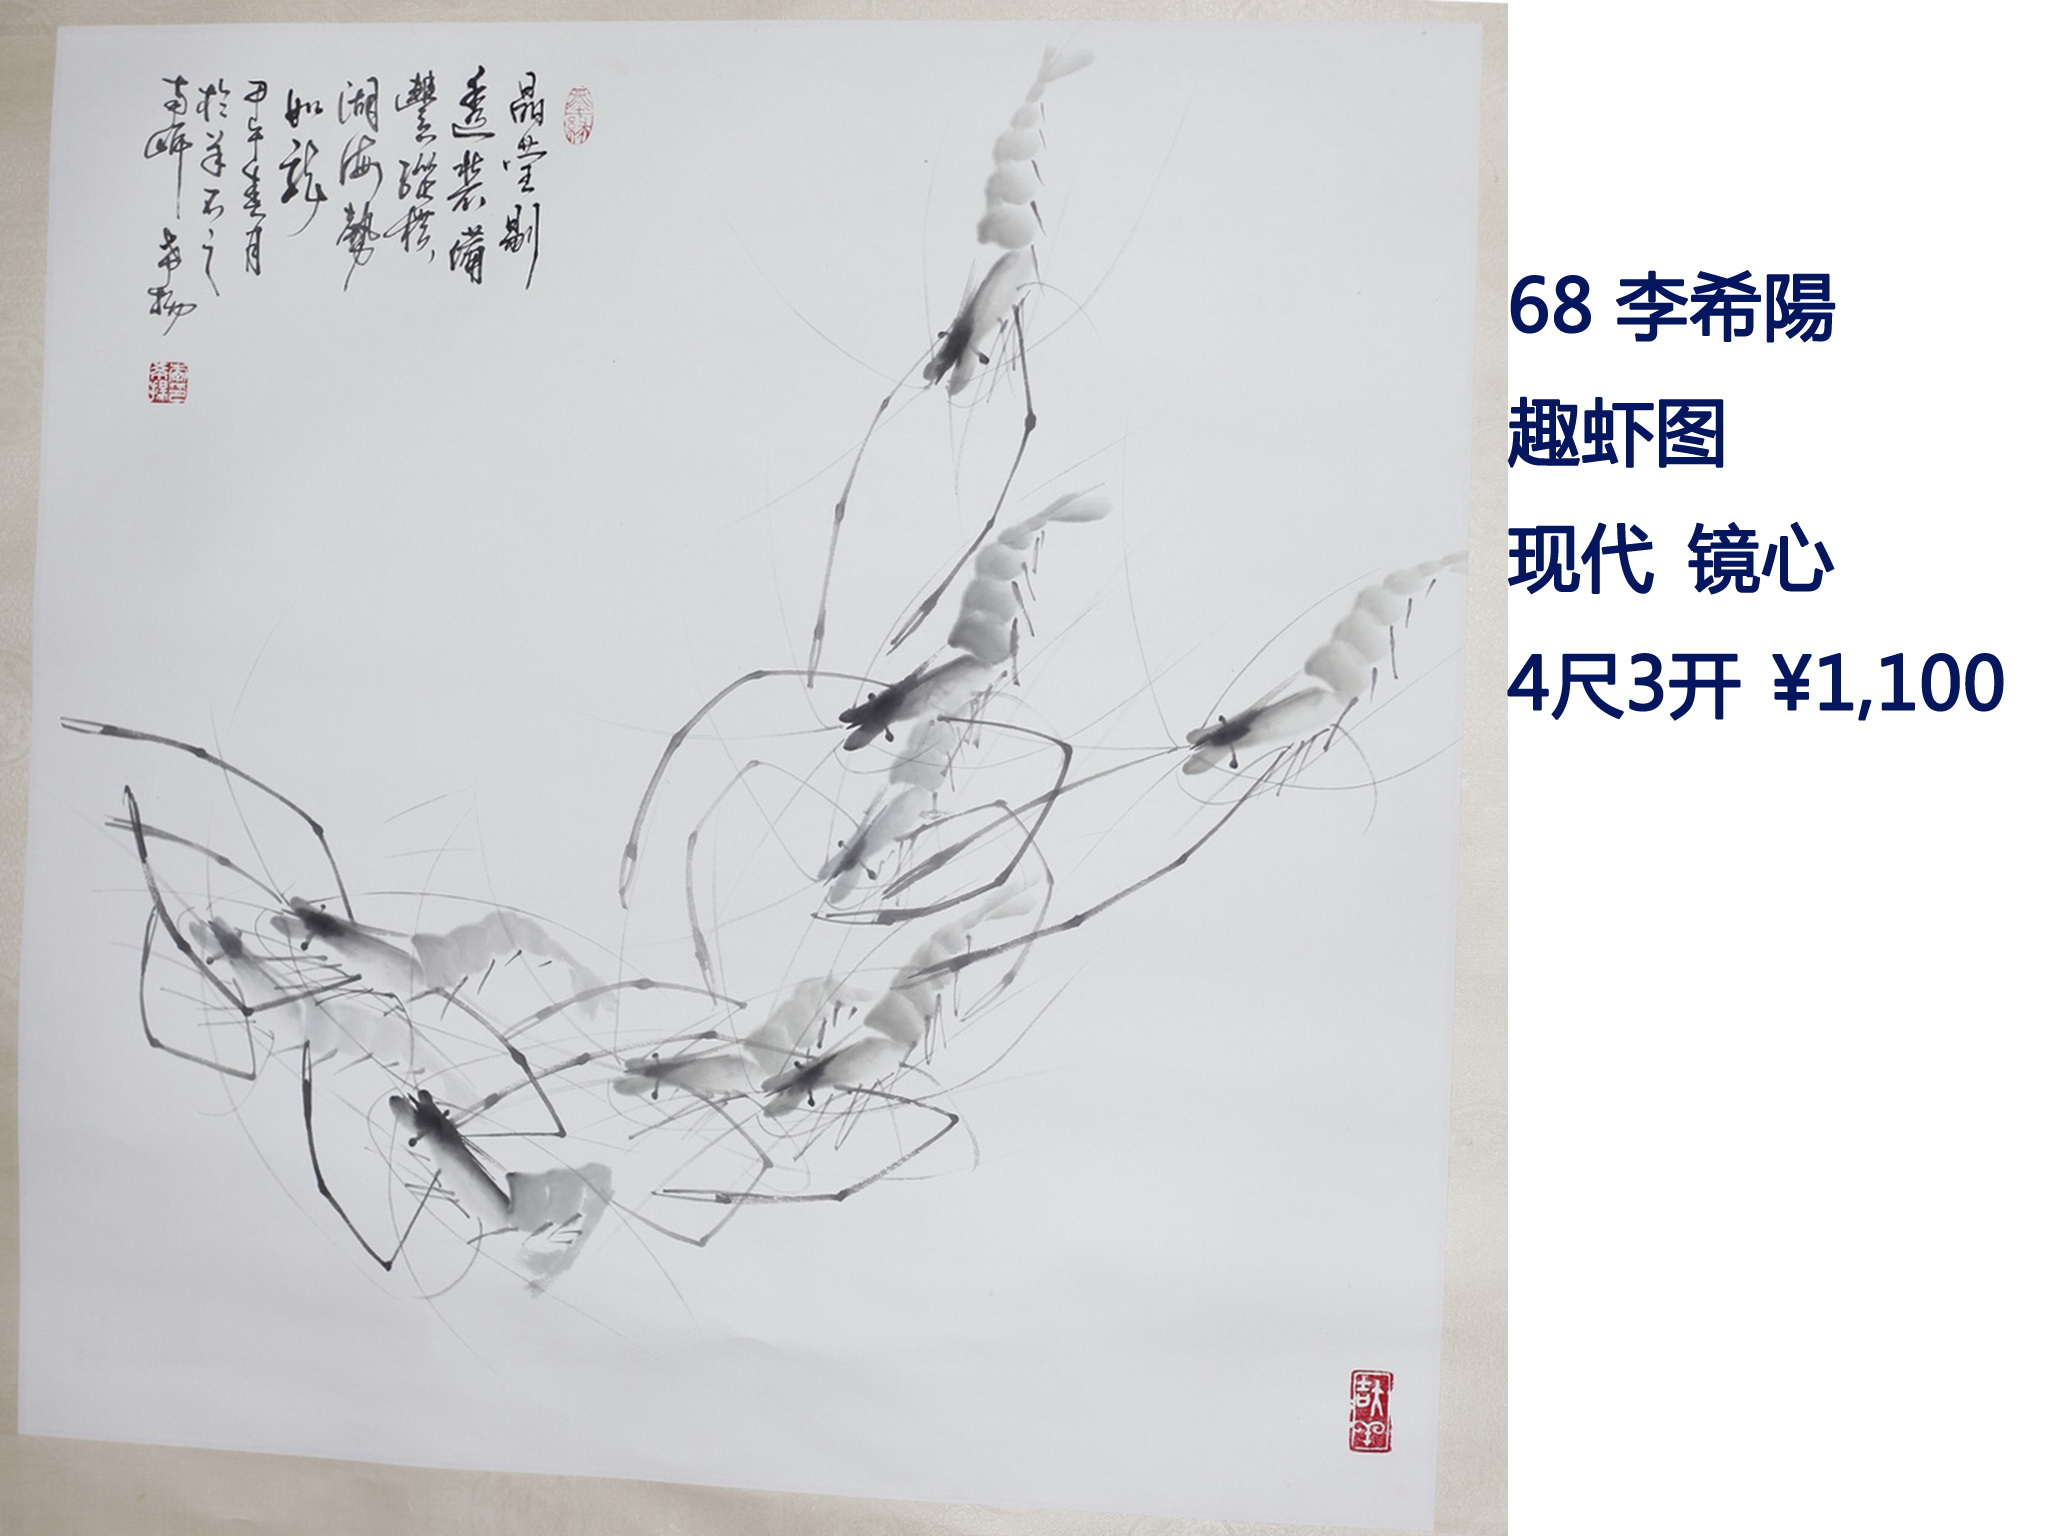 晶莹剔
透裝備
豐縱横
湖海勢
如龍
甲午春月
於羊石之
南
68 李希陽
趣虾图
现代 镜心
4尺3开 ¥1,100